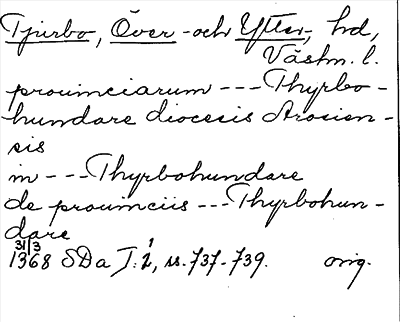 Tjurbo, Över- och Ytter-, hd,
Västm. l.
prouinciarum --- Thyrbo-
hundare diocesis Arosien-
sis
in --- Thyrbohundare
de prouinciis --- Thyrbohun-
dare
31/3
1368 SDa I:1, ss. 737-739. orig.